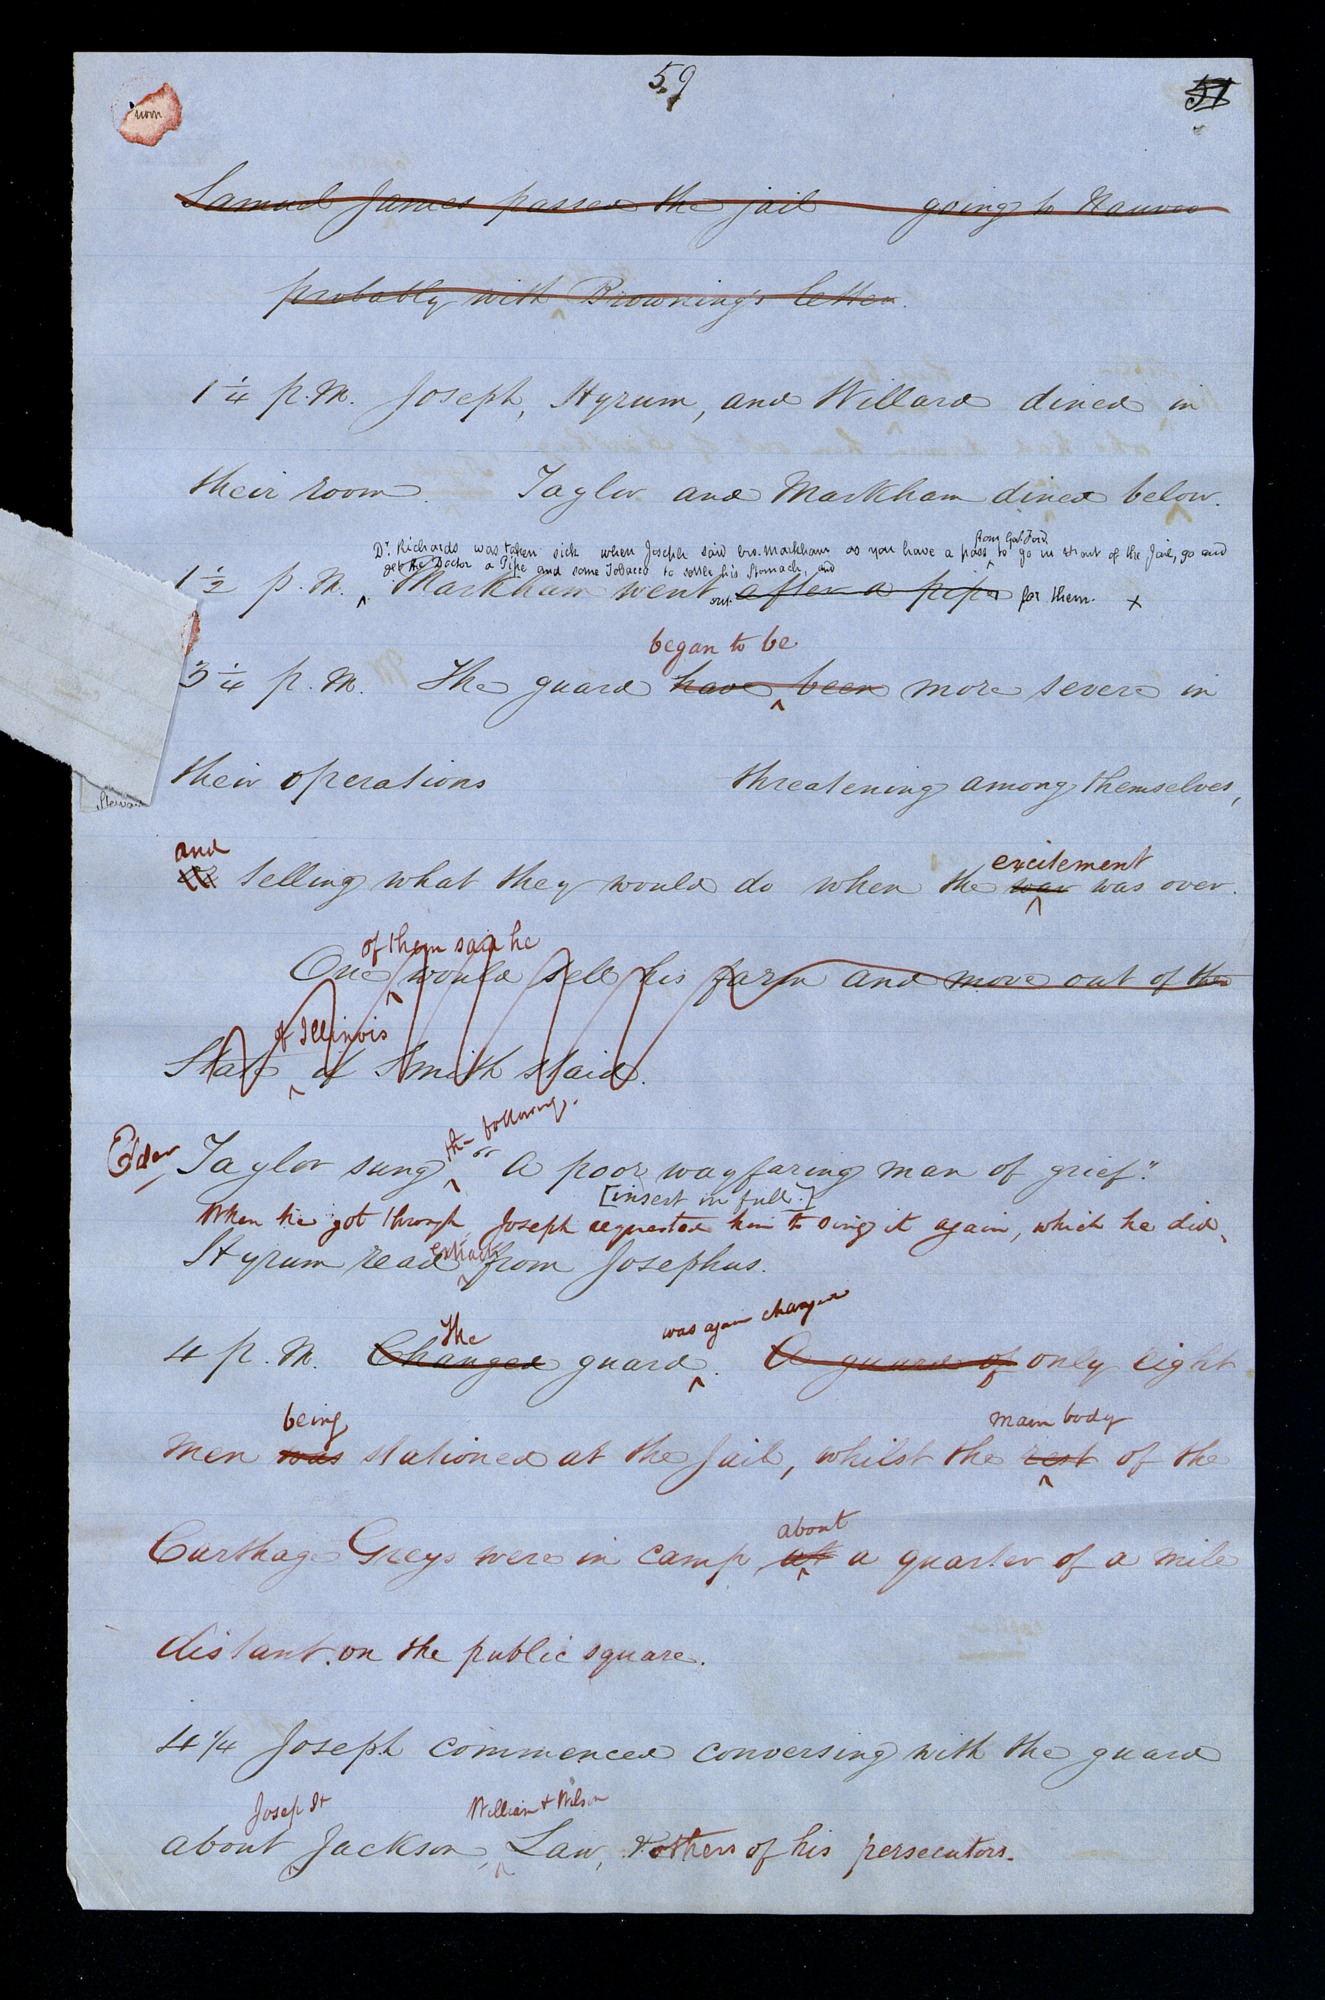 59
51
nom
Samuel James passed the jail going to Nauvoo
probably with Browning's letter.
1 1/4 p.m. Joseph, Hyrum, and Willard dined in
their room. Taylor and Markham dined below.
from Gov Ford
Dr. Richards was taken sick when Joseph said bro. Markham as you have a pass to go in & out of the Jail, go and
get the Doctor a Pipe and some Tobacco to settle his Stomach, and
1 1/2 p.m. Markham went out after a pipe for them. x
began to be
3 1/4 p.m. The guard have been more severe in
their operations threatening among themselves,
and excitement
telling what they would do when the war was over.
of them said he
One would sell his farm and move out of the
of Illinois
State if Smith staid.
the following.
Elder Taylor sung "A poor wayfaring man of grief."
[insert in full.]
When he got through Joseph requested him to sing it again, which he did.
extracts
Hyrum read from Josephus.
The was again changed
4 p.m. Changed guard. A guard of only eight
being main body
men was stationed at the Jail, whilst the rest of the
about
Carthage Greys were in camp, at a quarter of a mile
distant on the public square.
4 1/4 Joseph commenced conversing with the guard
Joseph H William & Wilson
about Jackson, Law, & others of his persecutors.